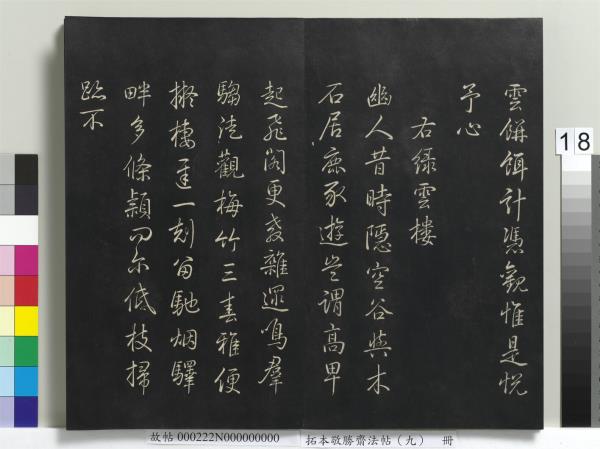 雲餅餌計憑觀惟是悅
予心
右綠雲樓
幽人昔時隱空谷與木
石居鹿豕遊豈謂高甲
起飛閣更教雜遝鳴羣
騶流觀梅竹三春雅便
擬棲遲一刻留馳烟驛
畔多條穎回尔低枝掃
跡不
18
故帖 000222N000000000
拓本敬勝齋法帖（九） 冊